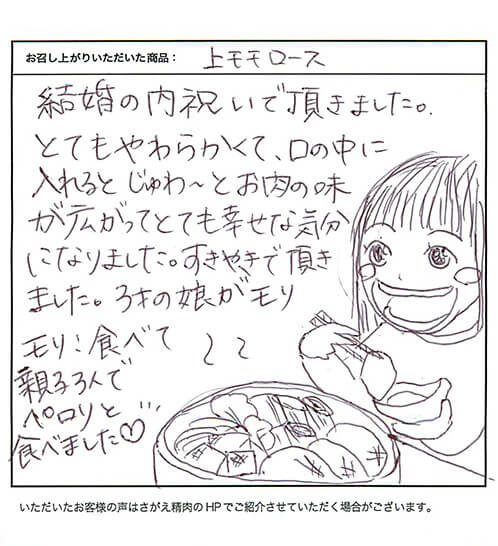 お召し上がりいただいた商品： 上モモロース
結婚の内祝いで頂きました。
とてもやわらかくて、口の中に
入れるとじゅわ〜とお肉の味
が広がってとても幸せな気分
になりました。すきやきで頂き
ました。3才の娘がモリ
モリ食べて
親子3人で
ペロリと
食べました♡
いただいたお客様の声はさがえ精肉のHPでご紹介させていただく場合がございます。